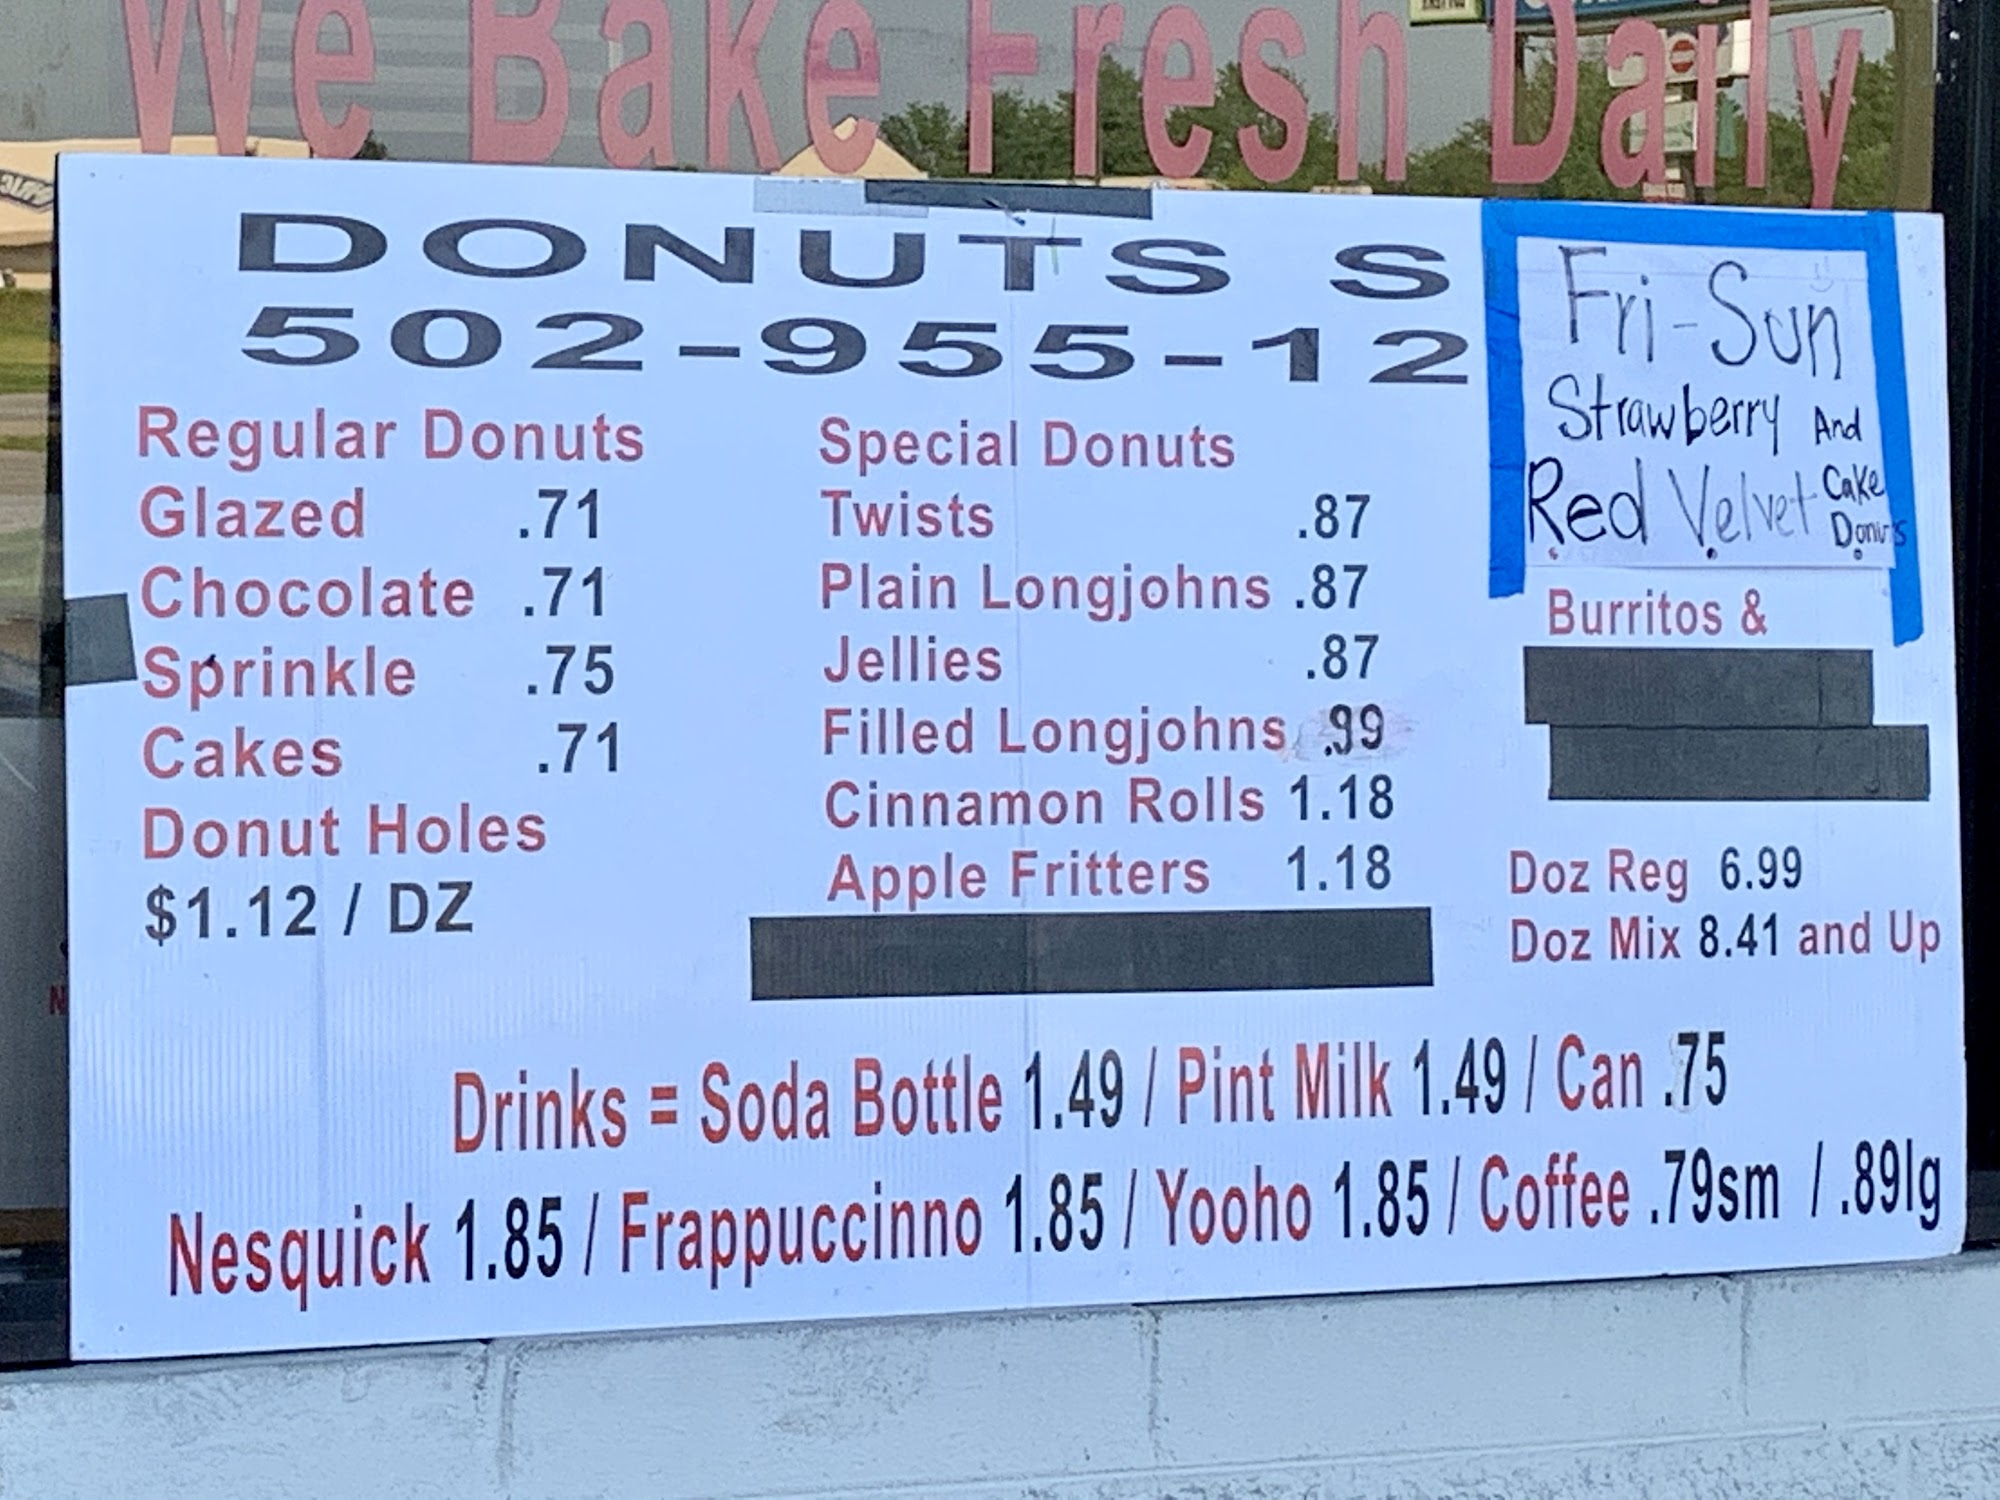 We Bake Fresh Daily
DONUTS S
502-955-12
Fri-Sun
Strawberry And
Red Velvet Cake
Donuts
Regular Donuts
Glazed .71
Chocolate .71
Sprinkle .75
Cakes .71
Donut Holes
$1.12 / DZ
Special Donuts
Twists .87
Plain Longjohns .87
Jellies .87
Filled Longjohns .99
Cinnamon Rolls 1.18
Apple Fritters 1.18
Burritos &
Doz Reg 6.99
Doz Mix 8.41 and Up
Drinks = Soda Bottle 1.49 / Pint Milk 1.49 / Can .75
Nesquick 1.85 / Frappuccinno 1.85 / Yooho 1.85 / Coffee .79sm / .89lg